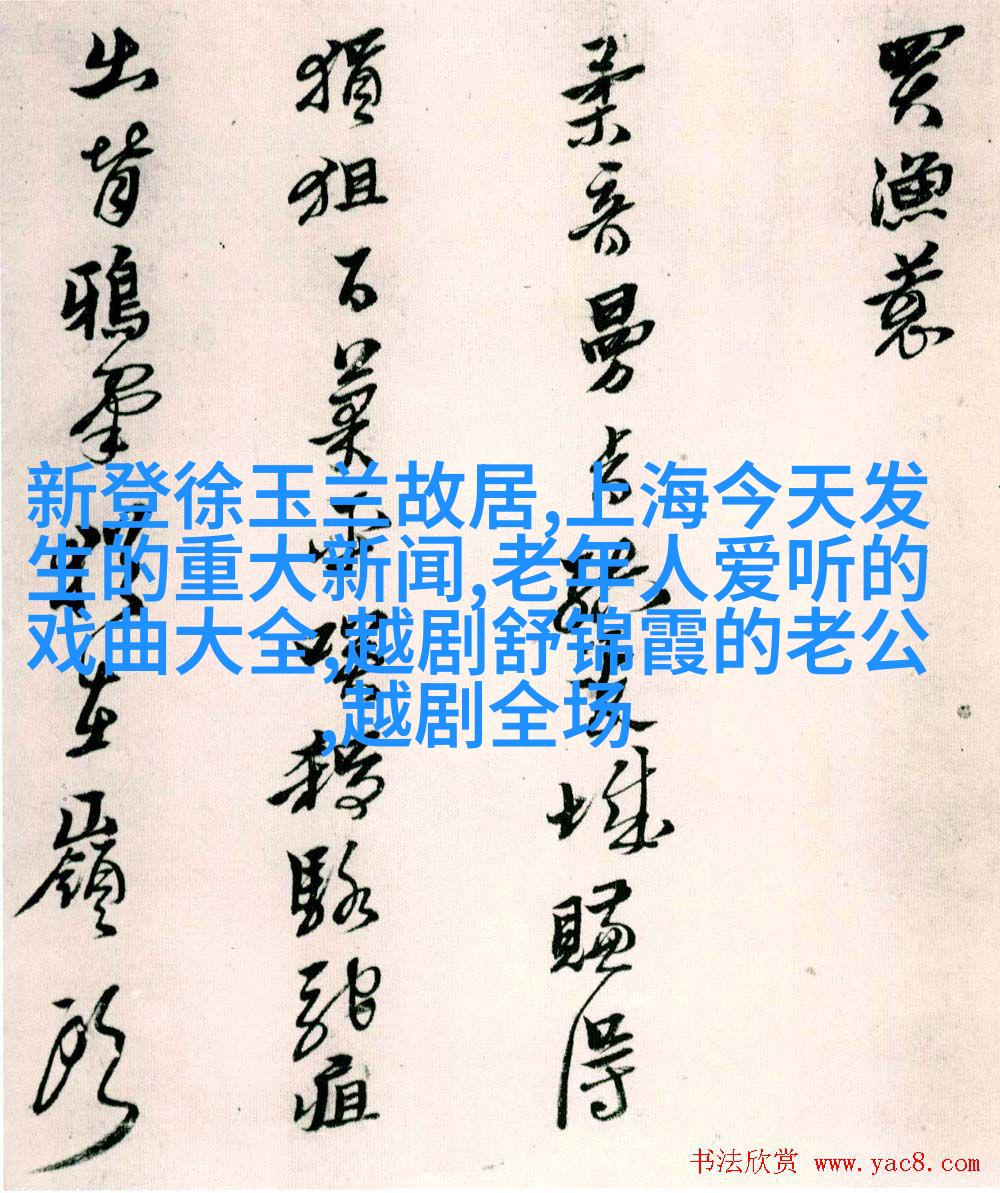 買漁蓑
柔音曼
城賺得
狙百
駱駝疽
出背鴉
在嶺頭
新登徐玉兰故居,上海今天发
生的重大新闻,老年人爱听的
戏曲大全,越剧舒锦霞的老公
,越剧全场
书法欣赏 www.yac8.com